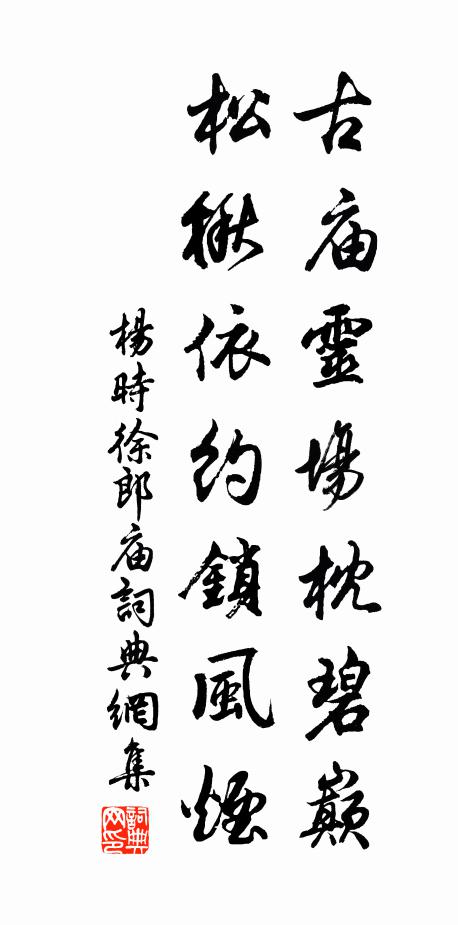 古庙靈場枕碧巔
松楸依約鎖風煙
楊時徐郎庙詞典網集
詞典网印